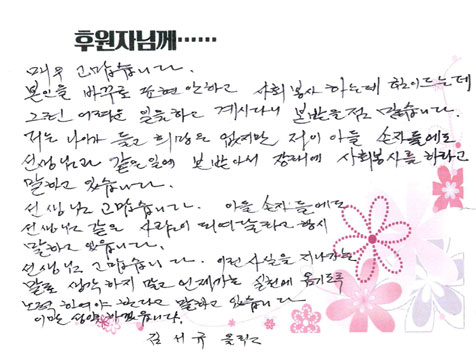 후원자님께……
매우 고맙습니다.
본인을 바꾸로 표현 안하고 사회봉사 하는데 힘이 드는데
그런 어려운 일들하고 계시다니 본받을점 많습니다.
저는 나이가 들고 희망은 없지만 저이 아들 손자들에도
선생님과 같은 일에 본받아서 장래에 사회봉사를 하라고
말하고 있습니다.
선생님 고맙습니다. 아들 손자들에도
선생님 같은 사람이 되여 항시
말하고 있습니다.
선생님 고맙습니다. 이런 사실을 지나가는
말로 생각하지 말고 언제가는 실천에 옮기도록
노력 하여야 한다고 말하고 있습니다
이만
김 서규 올림